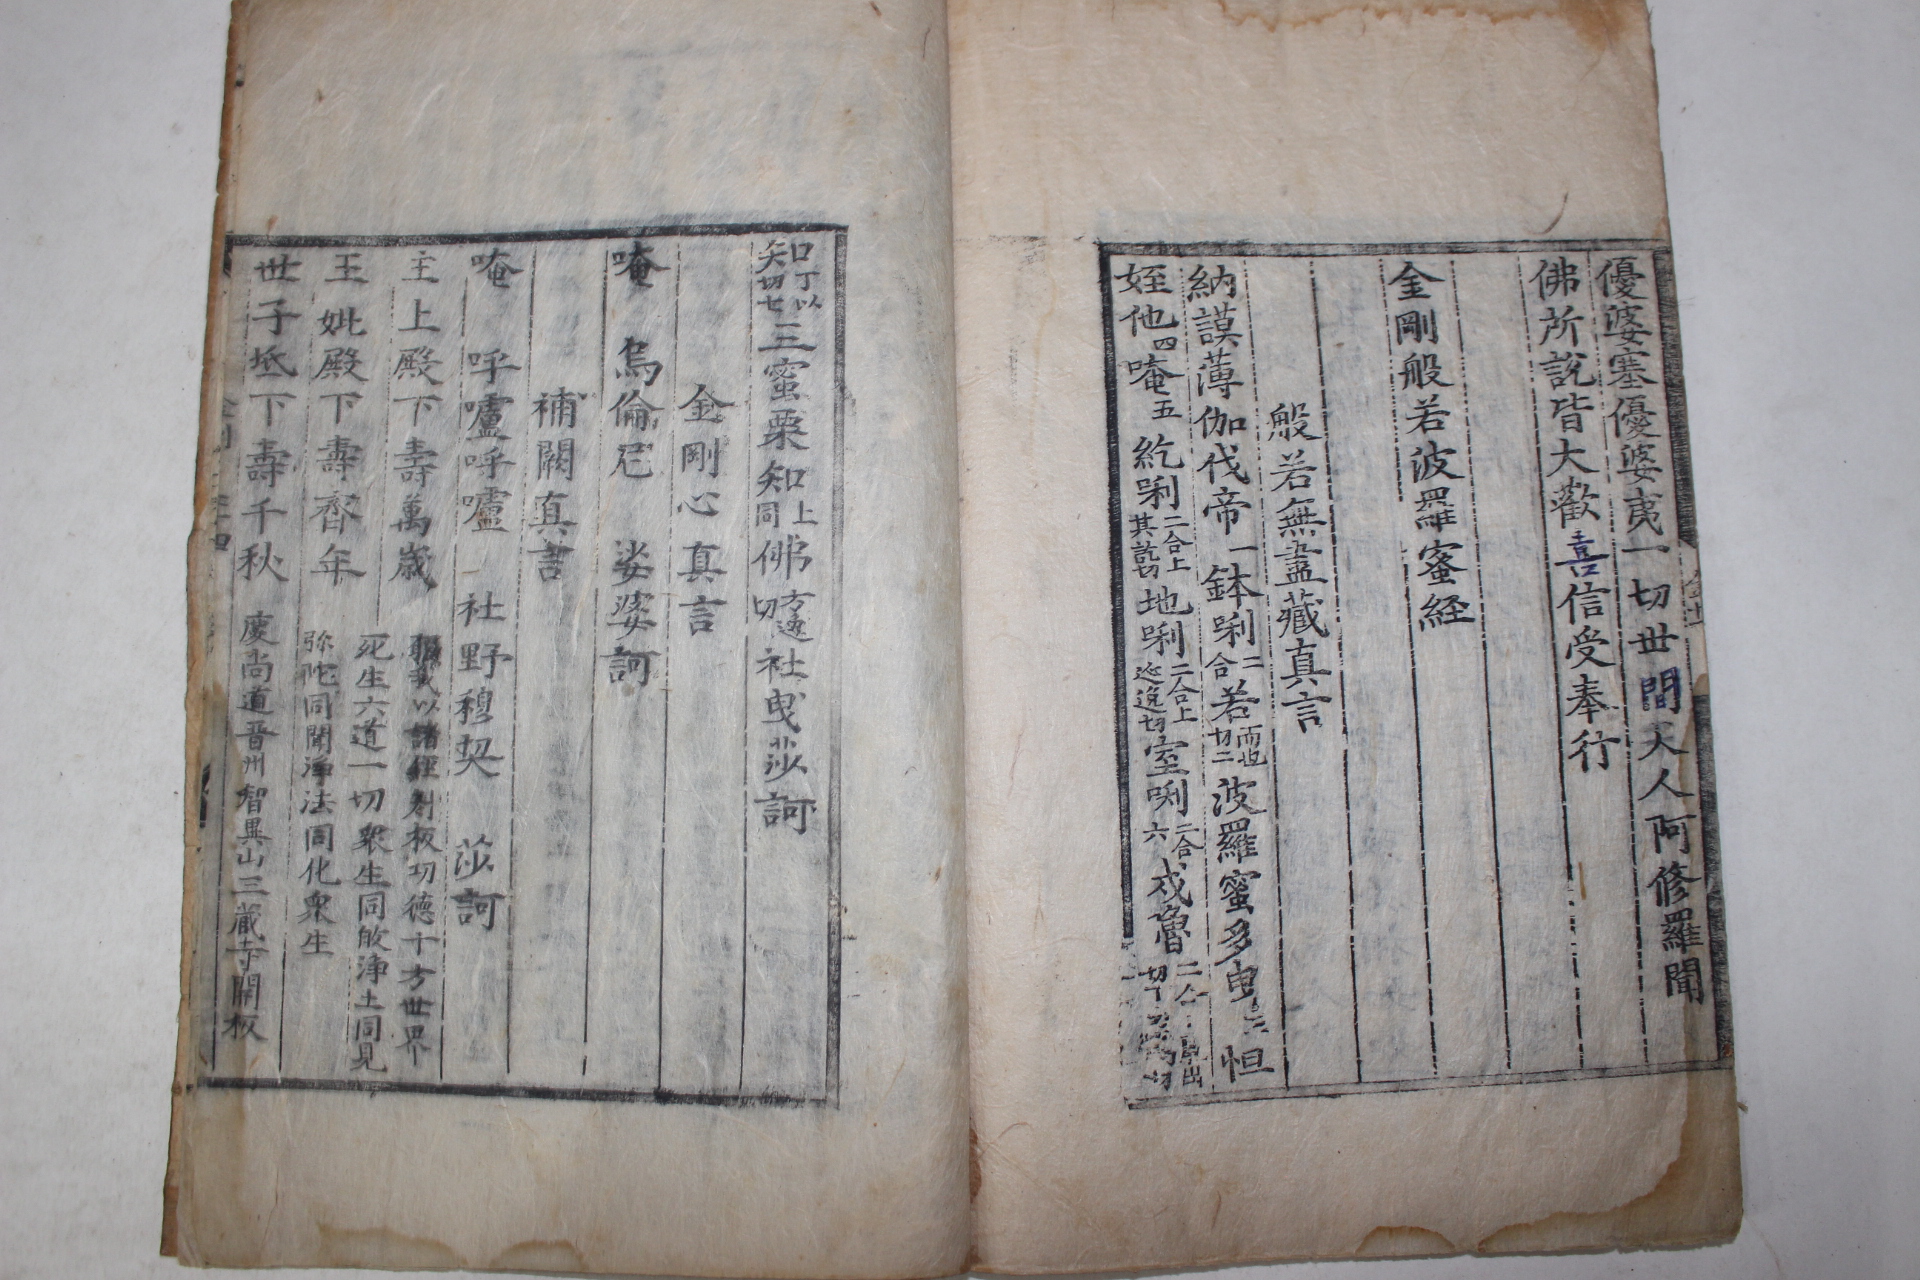 優婆塞優婆夷一切世間天人阿修羅聞
佛所說皆大歡喜信受奉行
金剛般若波羅蜜経
般若無盡藏真言
納謨薄伽伐帝一鉢唎二合若而也切二波羅蜜多曳三怛
姪他四唵五紇唎二合上其訖切地唎二合上室唎二合六戍嚕二合
知三蜜栗知上同佛社曳莎訶
金剛心真言
唵 烏倫尼 娑婆訶
補闕真言
唵 呼嚧呼嚧 社野穆契 莎訶
主上殿下壽萬歲 以諸經刻板功德十方世界
王妣殿下壽齊年 死生六道一切衆生同做淨土同見
弥陀同聞淨法同化衆生
世子邸下壽千秋 慶尚道晋州智異山三藏寺開板